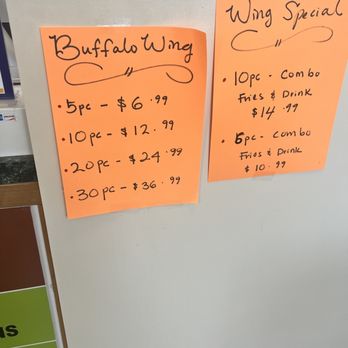 Buffalo Wing
• 5pc - $6.99
• 10pc - $12.99
• 20pc - $24.99
• 30pc - $36.99
Wing Special
• 10pc - Combo
Fries & Drink
$14.99
• 5pc - Combo
Fries & Drink
$10.99